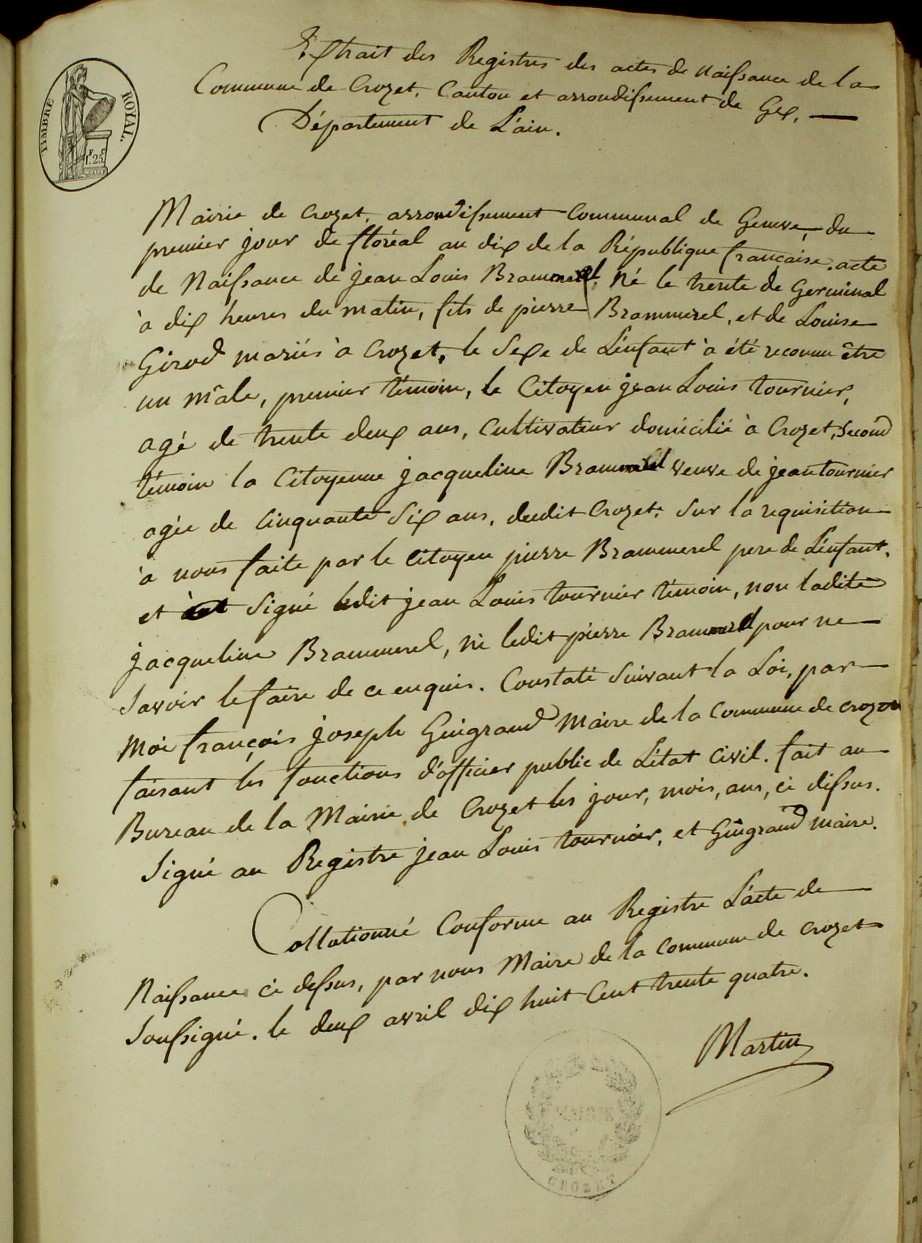 TIMBRE ROYAL.
1F. 25C
Extrait des Registres des actes de Naissance de la
Commune de Crozet, Canton et arrondissement de Gex.
Département de L'ain.
Mairie de Crozet, arrondissement Communal de Geneve, du
premier jour de floréal an dix de la République française. acte
de Naissance de jean Louis Brammerel, Né le trente de Germinal
à dix heures du matin, fils de pierre Brammerel, et de Louise
Girod mariés à Crozet, le Sexe de L'enfant à été reconnu être
un mâle, premier témoin, le Citoyen jean Louis tournier,
agé de trente deux ans, Cultivateur domicilié à Crozet, second
témoin la Citoyenne jacqueline Brammerel veuve de jean tournier
agée de Cinquante Six ans, dudit Crozet. Sur la requisition
à nous faite par le Citoyen pierre Brammerel pere de L'enfant.
et à Signé ledit jean Louis tournier témoin, non ladite
jacqueline Brammerel, ni ledit pierre Brammerel pour ne
Savoir le faire de ce enquis. Constaté Suivant la Loi, par
Moi françois joseph Guigrand Maire de la Commune de Crozet
faisant les fonctions d'officier public de L'état Civil. fait au
Bureau de la Mairie de Crozet les jour, mois, ans, ci dessus.
Signé au Registre jean Louis tournier, et Guigrand maire.
Collationné Conforme au Registre L'acte de
Naissance ci dessus, par nous Maire de la Commune de Crozet
Soussigné. le deux avril dix huit Cent trente quatre.
Martin
MAIRIE
CROZET